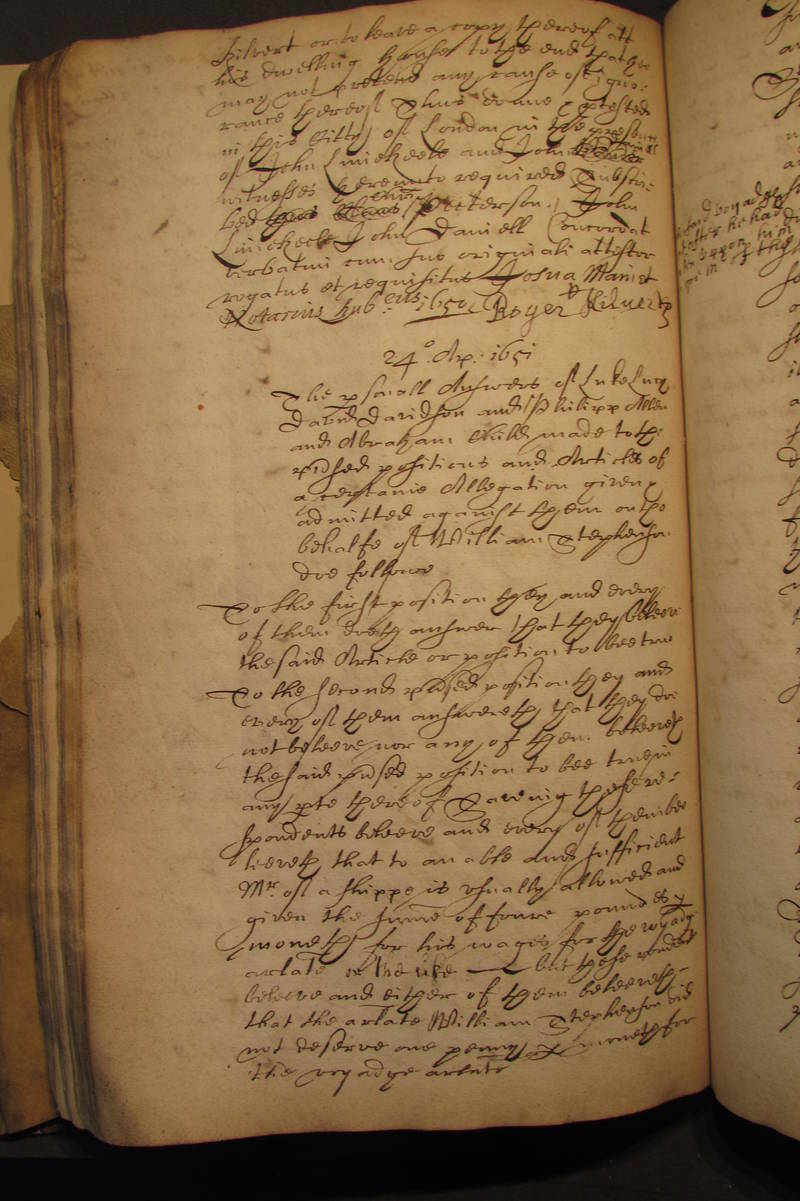 Hilvert or to leave a copy thereof att
his dwelling house to the end that hee
may not pretend any cause of igno-
rance thereof Thus done & prtested
in this Citty of London in the presence
of John Linebeebe and John Daniell
witnesses hereunto required Subscri-
bed Peeterson. John
John Daniell Concordat
verbatim cum suo originali attestor
rogatus et requisitus Josua Mainet
Notarius Pub:cus 1650 Roger Hilvert
24°. Ap: 1651
The psonall Answers of Luke Lucy
David Davidson and Philipp Allen
and Abraham Childs made to the
prtsed positions and Articles of
a certaine Allegation given &
admitted against them on the
behalfe of William Stephenson
doe followe
To the first position they and every
of them doeth answer that they beleeve
the said Article or position to bee true
To the second prtsed position they and
every of them answereth that they doe
not beleeve nor any of them beleeveth
the said prtsed position to bee true in
any pte thereof Saveing these re-
spondents beleeve and every of them be
leeveth that to an able and sufficient
Mr of a shippe is usually allowed and
given the summe of foure pounds p
moneth for his wages for the voyadge
arlate or the like but these rondents
beleeve and either of them beleeveth
that the arlate William Stephenson did
not deserve one penny p moneth for
the voyadge arlate
said voyadge
after he had